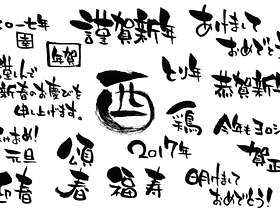 二〇一七年
園
年賀
謹賀新年
あけまして
おめでとう!
謹んで
新春のお慶びを
申し上げます。
酉
とり年
恭賀新年
鶏
今年もヨロシ
あけおめ!
元旦
頌春
福寿
2017年
賀正
迎春
明けまして
おめでとう!